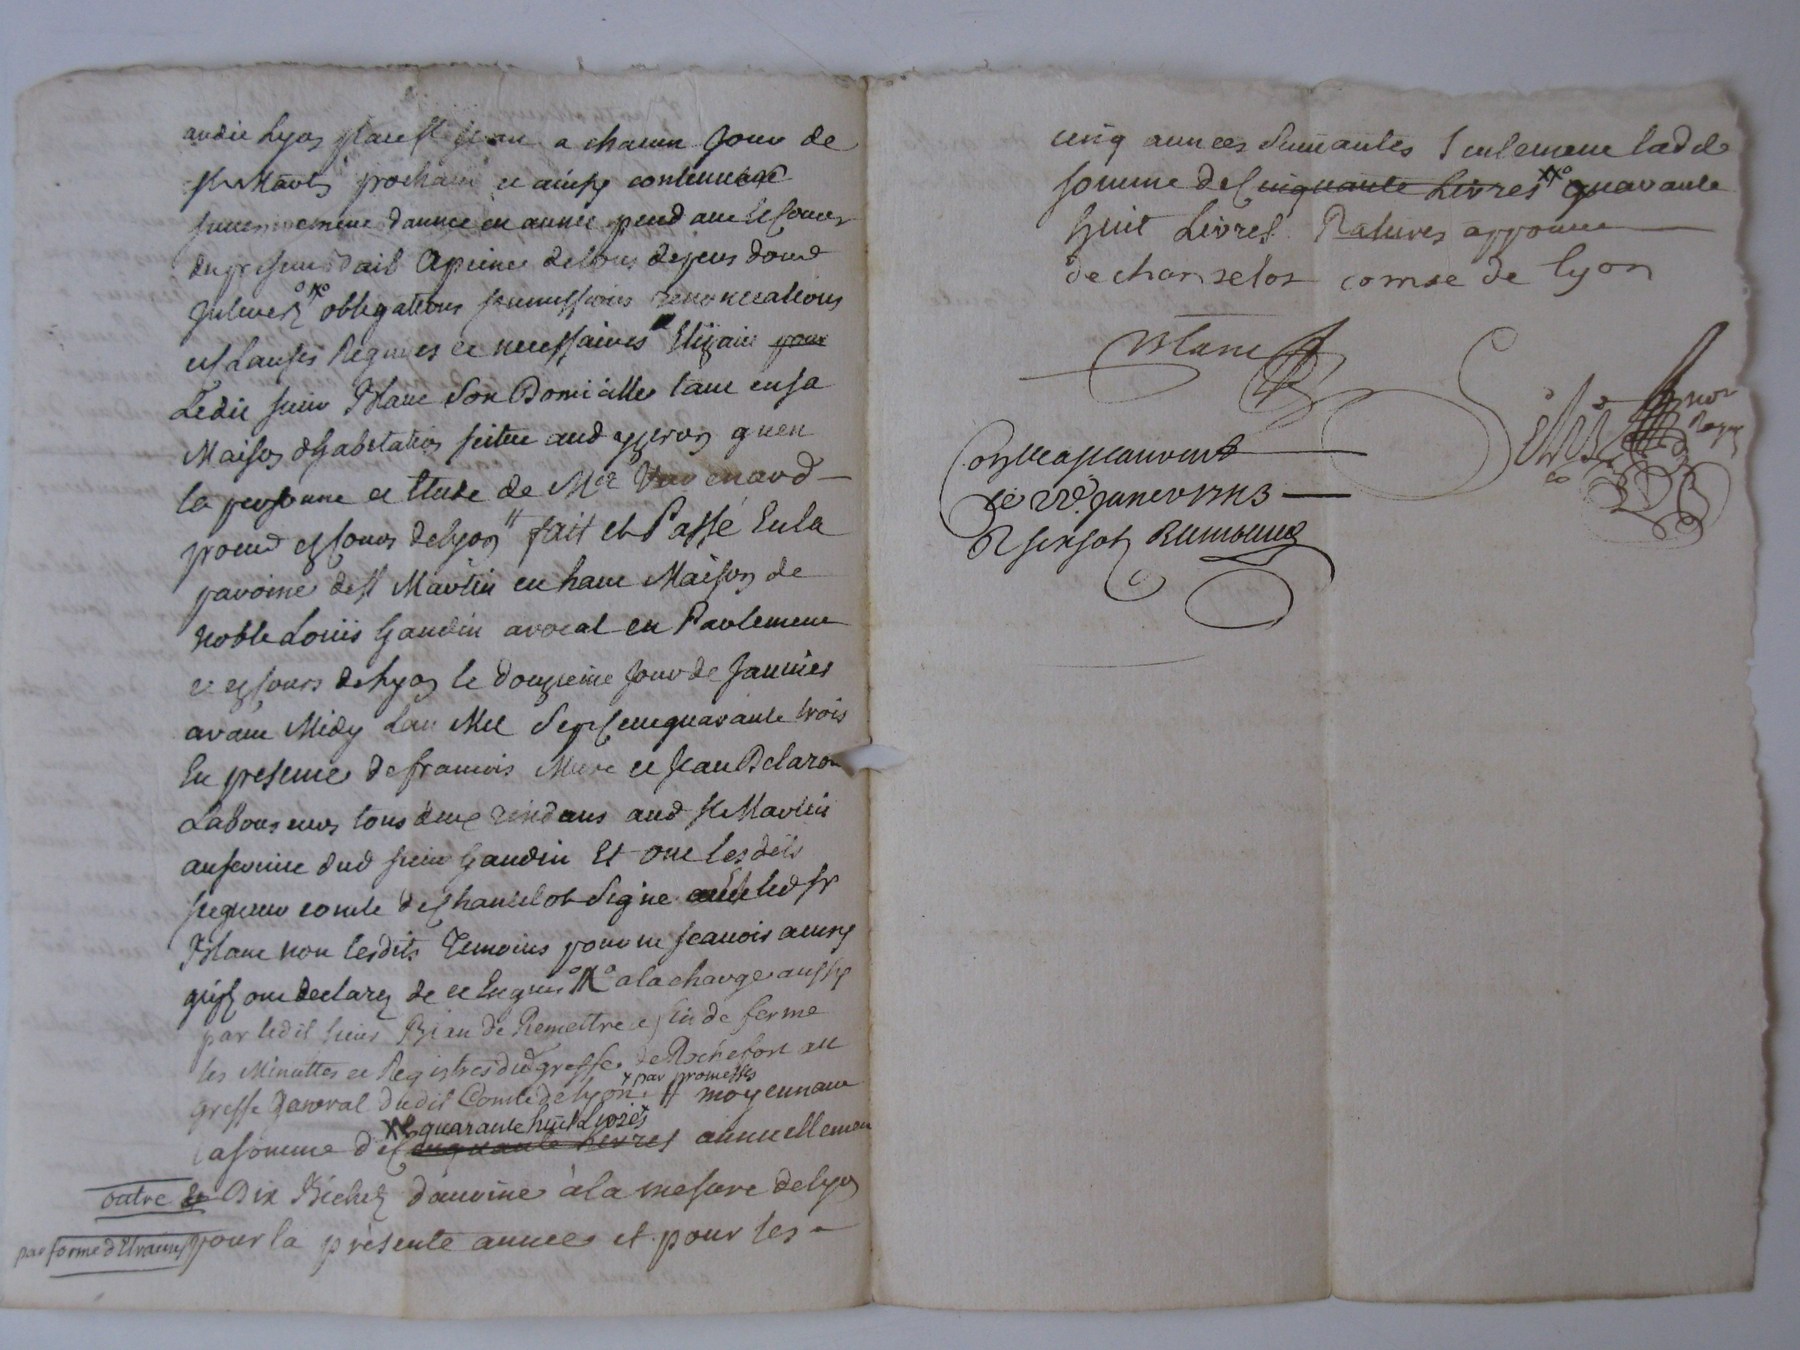 audit Lyon place St Jean a chacun Jour de
St Martin prochain et ainsy continuer
successivement d'année en année pendant le cours
du present bail a peine de tous depens dom̃
Interetz obligations soumissions renonciations
et clauses Requises et necessaires Elizant pour
Ledit sieur Blanc Son Domicille tant en sa
Maison d'habitation scitue aud yzeron qu'en
la personne et Etude de Me
procur ez Cours de Lyon fait et Passé En la
paroisse de St Martin en haut Maison de
Noble Louis Gaudin avocat en Parlement
et ez Cours de Lyon le douzieme Jour de Janvier
avant Midy L'an Mil Sept Cent quarante trois
En presence de francois et Jean Delaron
Laboureurs tous deux residans aud St Martin
au service dud sieur Gaudin Et ont lesdits
seigneur comte de Chantelot Signé avec led Sr
Blanc non lesdits temoins pour ne scavoir ainsy
qu'ilz ont declaré de ce Enquis a la charge aussy
par ledit sieur Blanc de Remettre en fin de ferme
les Minuttes et Registres dud greffe de Rochefort au
greffe general dudit Comté de Lyon moyennant
par promesses
la somme de Cinquante Livres annuellement
quarante huit Livres
outre Dix Bichetz d'avoine à la mesure de Lyon
par forme d'Etrennes pour la presente annee et pour les
cinq annees Suivantes Seulement lad de
somme de Cinquante Livres quarante
huit Livres Ratures approuvé
de chanselot comte de lyon
Blanc
nor
Royal
Con̄lle a St Laurent
le 22e janvier 1743
R six sols